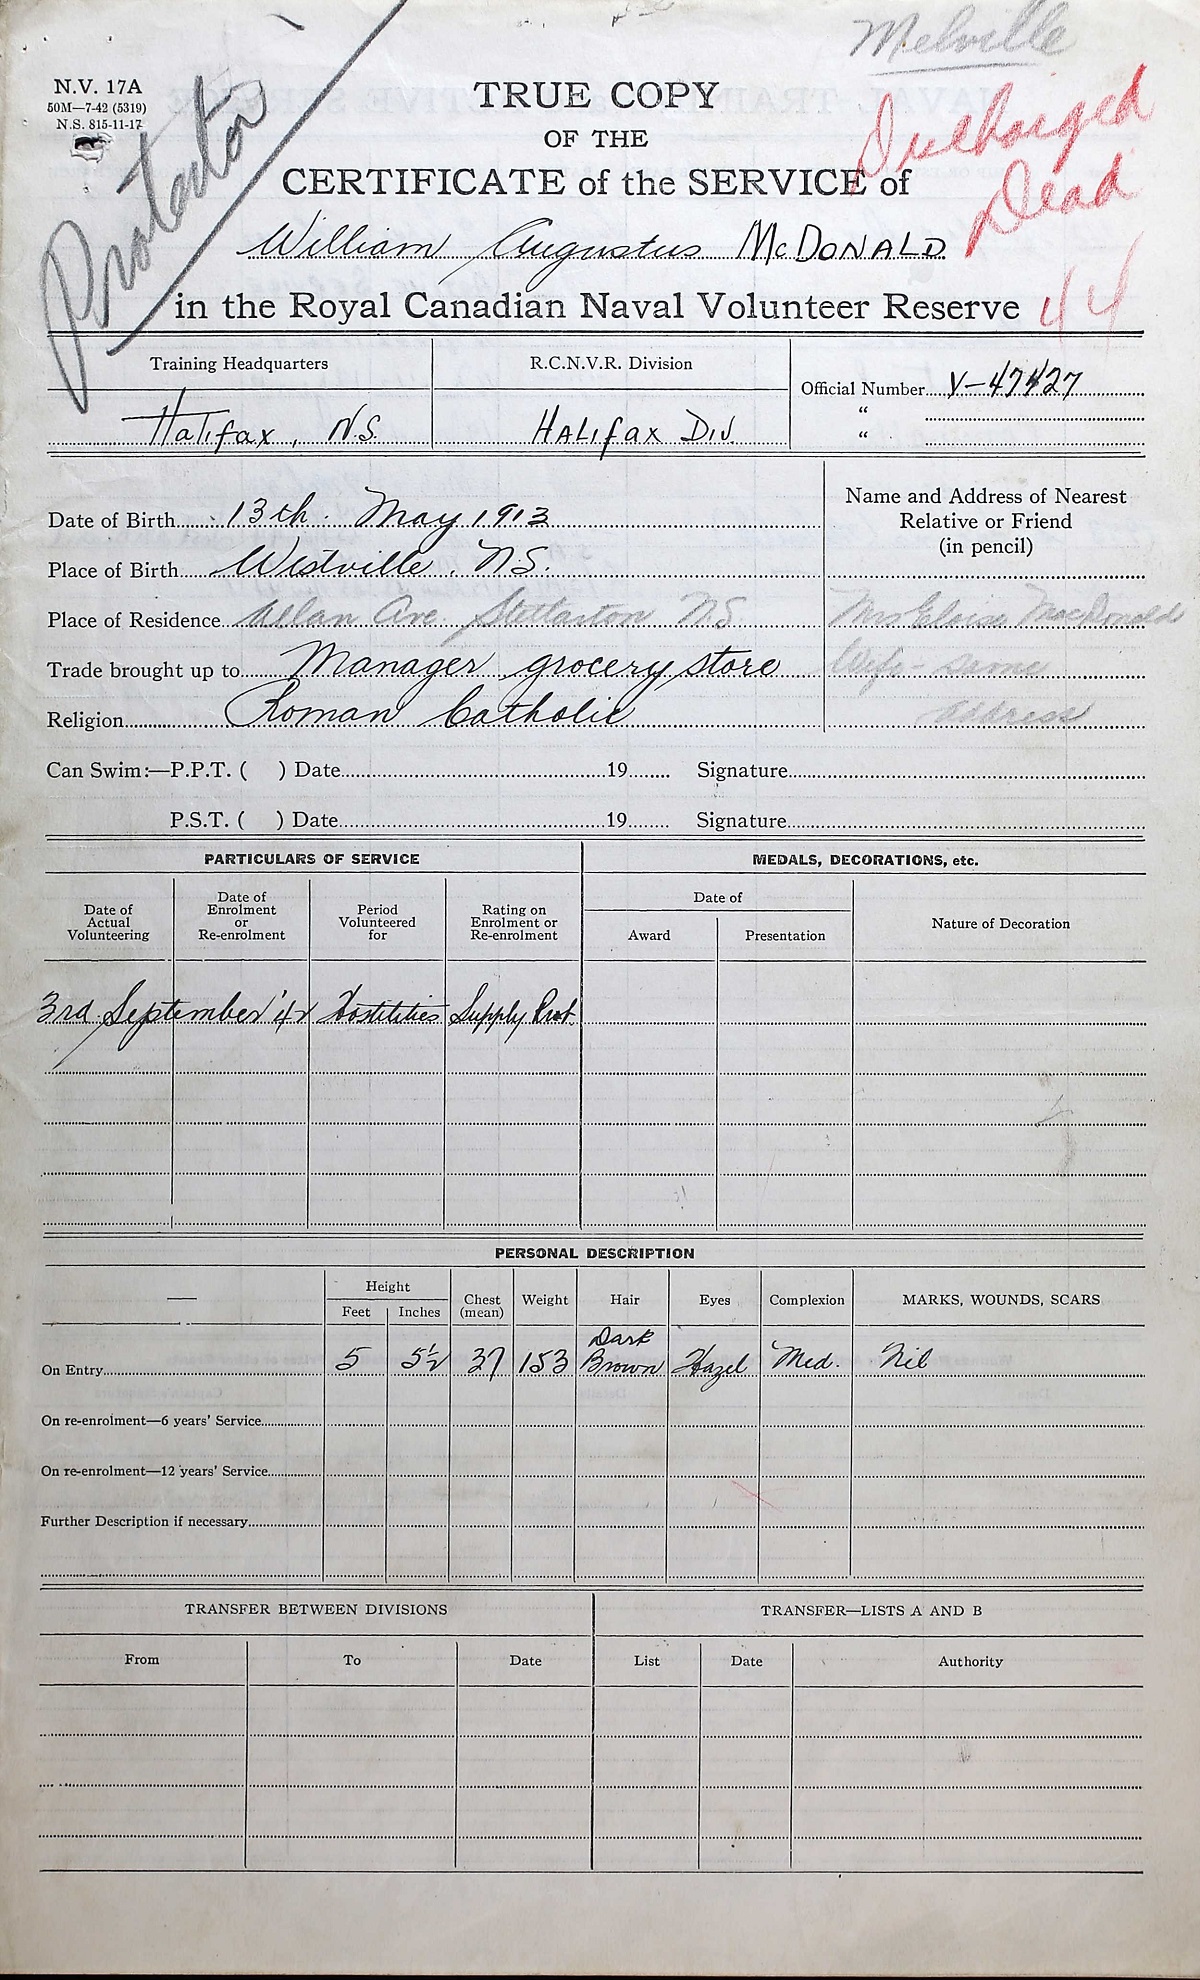 Melville
N.V. 17A
50M—7-42 (5319)
N.S. 815-11-17
Protector
TRUE COPY
OF THE
CERTIFICATE of the SERVICE of
Discharged
Dead
44
William Augustus McDONALD
in the Royal Canadian Naval Volunteer Reserve
Training Headquarters R.C.N.V.R. Division Official Number V-47427
Halifax, N.S. HALifax Div. “
“
Name and Address of Nearest
Relative or Friend
(in pencil)
Date of Birth 13th. May 1913
Place of Birth Westville, N.S.
Place of Residence Allan Ave Stellarton N.S. Mrs Eloise MacDonald
Trade brought up to Manager grocery store Wife - same
Religion Roman Catholic address
Can Swim:—P.P.T. ( ) Date 19 Signature
P.S.T. ( ) Date 19 Signature
PARTICULARS OF SERVICE MEDALS, DECORATIONS, etc.
Date of Actual Volunteering Date of Enrolment or Re-enrolment Period Volunteered for Rating on Enrolment or Re-enrolment Date of Nature of Decoration
Award Presentation
3rd September '42 Hostilities Supply Prob.
PERSONAL DESCRIPTION
— Height Chest (mean) Weight Hair Eyes Complexion MARKS, WOUNDS, SCARS
Feet Inches
On Entry 5 5½ 37 153 Dark Brown Hazel Med. Nil
On re-enrolment—6 years' Service
On re-enrolment—12 years' Service
Further Description if necessary
TRANSFER BETWEEN DIVISIONS TRANSFER—LISTS A AND B
From To Date List Date Authority